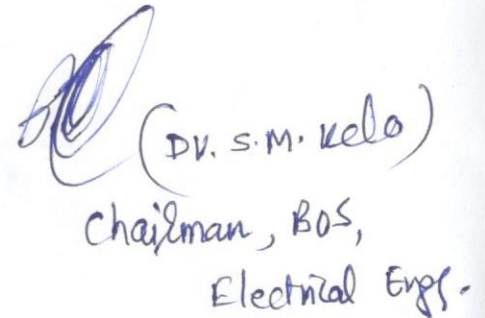 (Dr. S.M. Kelo)
Chairman, BOS,
Electrical Engg.